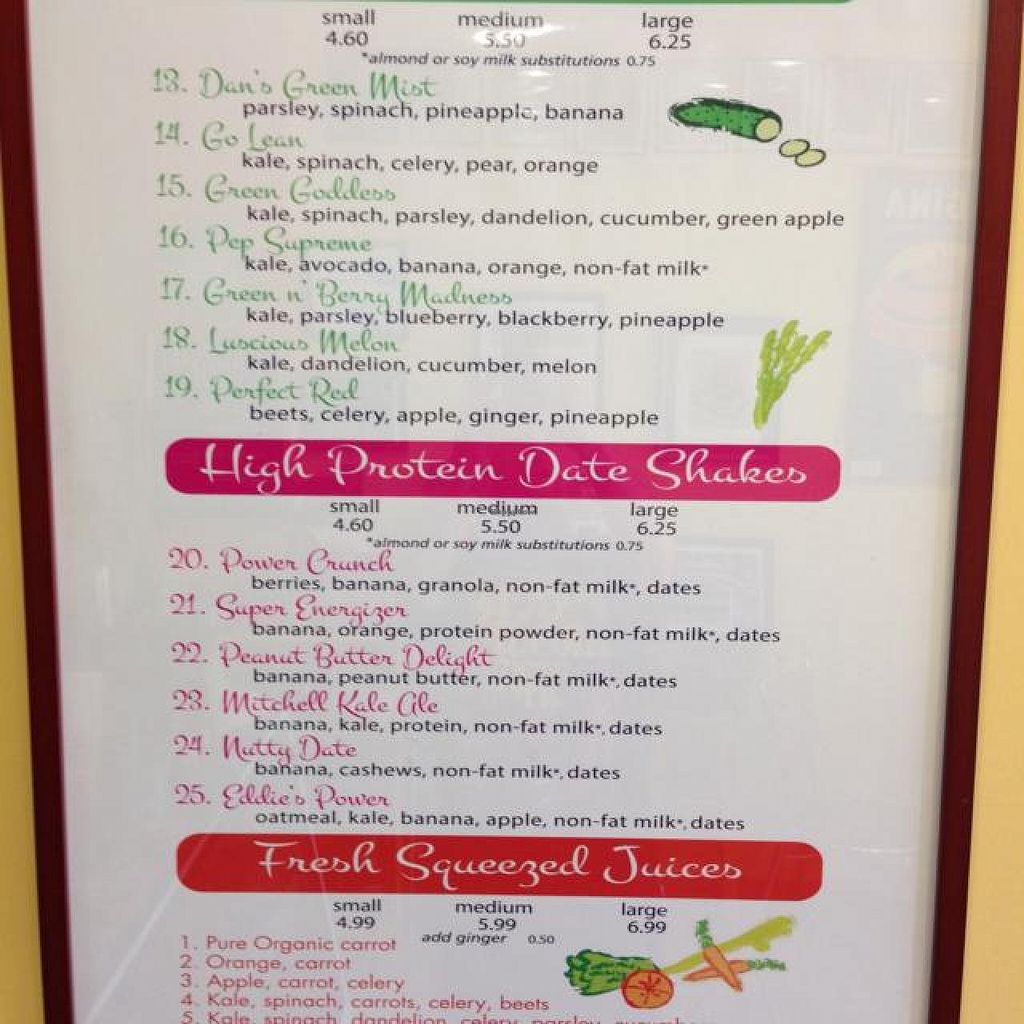 small medium large
4.60 5.50 6.25
*almond or soy milk substitutions 0.75
13. Dan's Green Mist
parsley, spinach, pineapple, banana
14. Go Lean
kale, spinach, celery, pear, orange
15. Green Goddess
kale, spinach, parsley, dandelion, cucumber, green apple
16. Pep Supreme
kale, avocado, banana, orange, non-fat milk*
17. Green n' Berry Madness
kale, parsley, blueberry, blackberry, pineapple
18. Luscious Melon
kale, dandelion, cucumber, melon
19. Perfect Red
beets, celery, apple, ginger, pineapple
High Protein Date Shakes
small medium large
4.60 5.50 6.25
*almond or soy milk substitutions 0.75
20. Power Crunch
berries, banana, granola, non-fat milk*, dates
21. Super Energizer
banana, orange, protein powder, non-fat milk*, dates
22. Peanut Butter Delight
banana, peanut butter, non-fat milk*, dates
23. Mitchell Kale Ale
banana, kale, protein, non-fat milk*, dates
24. Nutty Date
banana, cashews, non-fat milk*, dates
25. Eddie's Power
oatmeal, kale, banana, apple, non-fat milk*, dates
Fresh Squeezed Juices
small medium large
4.99 5.99 6.99
add ginger 0.50
1. Pure Organic carrot
2. Orange, carrot
3. Apple, carrot, celery
4. Kale, spinach, carrots, celery, beets
5. Kale, spinach, dandelion, celery, parsley,